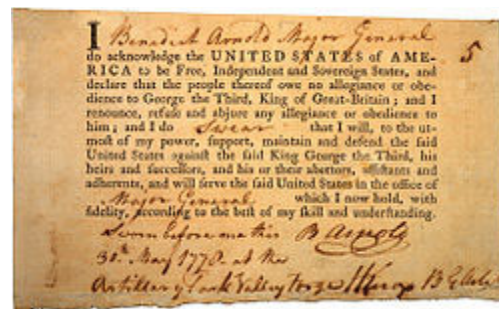 I Benedict Arnold Major General 5
do acknowledge the UNITED STATES of AME-
RICA to be Free, Independent and Sovereign States, and
declare that the people thereof owe no allegiance or obe-
dience to George the Third, King of Great-Britain; and I
renounce, refuse and abjure any allegiance or obedience to
him; and I do Swear that I will, to the ut-
most of my power, support, maintain and defend the said
United States against the said King George the Third, his
heirs and successors, and his or their abettors, assistants and
adherents, and will serve the said United States in the office of
Major General which I now hold, with
fidelity, according to the best of my skill and understanding.
Sworn before me this B Arnold
30th May 1778 at the
Artillery Park Valley Forge HKnox B G